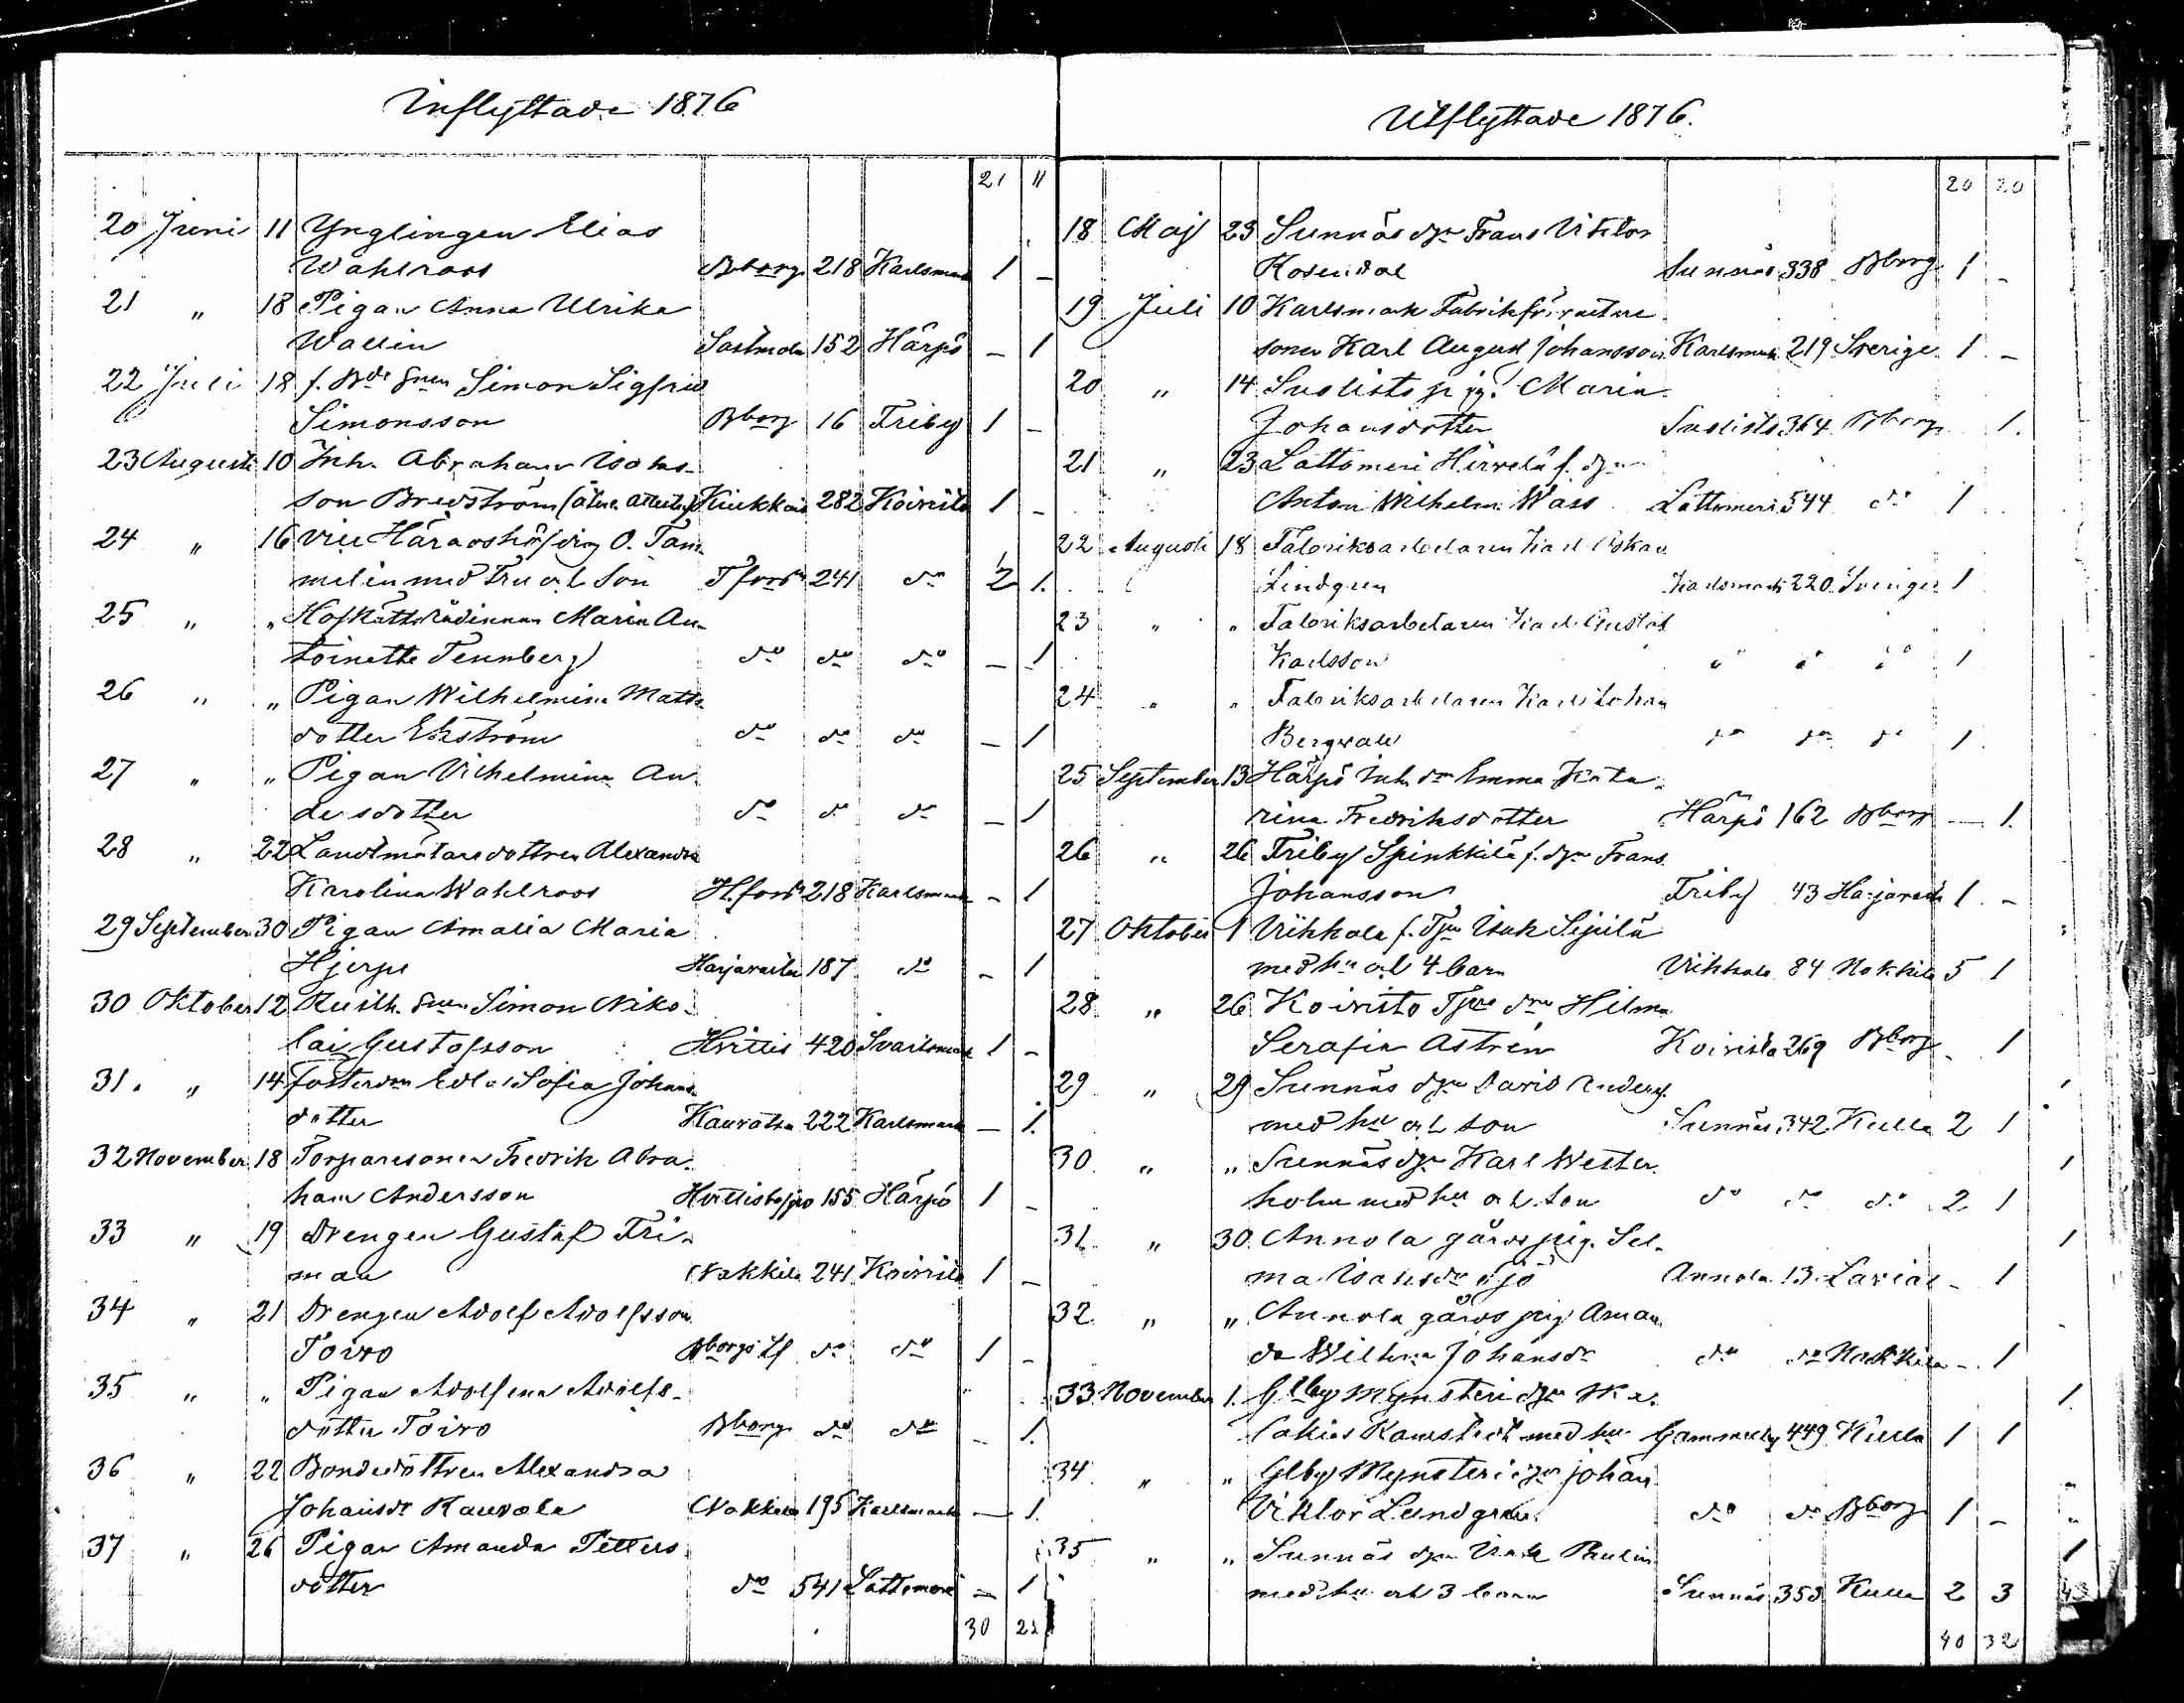 Inflyttade 1876
21 11
20 Juni 11 Ynglingen Elias
Wahlroos Bborg 218 Karlsmark 1 -
21 " 18 Pigan Anna Ulrika
Wallin Sastmola 152 Härpö - 1
22 Juli 18 f. Simon Sigfrid
Simonsson Bborg 16 Friby 1 -
23 Augusti 10 Inh. Abraham Isaks-
son Bredström Kiukkais 282 Koivisto 1 -
24 " 16 Vice Häradshöfding O. Tam-
melin med Fru och Son Tfors 241 do 2 1.
25 " " Hofrättsrådinnan Maria An-
toinette Tennberg do do do - 1
26 " " Pigan Wilhelmina Matts-
dotter Ekström do do do - 1
27 " " Pigan Vilhelmina An-
dersdotter do do do - 1
28 " 22 Landtmätaredottren Alexandra
Karolina Wahlroos H.fors 218 Karlsmark - 1
29 September 30 Pigan Amalia Maria
Hjerpe Harjavalta 187 do - 1
30 Oktober 12 Simon Niko-
lai Gustafsson Hvittis 420 Svartsmark 1 -
31. " 14 Fosterdn Edla Sofia Johans-
dotter Kauvatsa 222 Karlsmark - 1.
32 November 18 Torparesonen Fredrik Abra-
ham Andersson Hvittisbofjord 155 Härpö 1 -
33 " 19 Drengen Gustaf Fri-
man Nakkila 241 Koivisto 1 -
34 " 21 Drengen Adolf Adolfsson
Toivo Bborgs lf do do 1 -
35 " " Pigan Adolfina Adolfs-
dotter Toivo Bborg do do - 1.
36 " 22 Bondedottren Alexandra
Johansdr Kauvola Nakkila 195 Karlsmark - 1.
37 " 26 Pigan Amanda Petters-
dotter do 541 Lattomeri - 1
30 22
Utflyttade 1876.
20 20
18 Maj 23 Sunnäs dgn Frans Viktor
Rosendal Sunnäs 338 Bborg 1 -
19 Juli 10 Karlsmark Fabriksförvaltare
sonen Karl August Johansson Karlsmark 219 Sverige 1 -
20 " 14 Suslists pig. Maria
Johansdotter Suslists 364 Bborg 1.
21 " 23 Lattomeri Hirvelä f. dgn
Anton Wilhelm Wass Lattomeri 544 do 1
22 Augusti 18 Fabriksarbetaren Karl Oskar
Lindgren Karlsmark 220 Sverige 1
23 " " Fabriksarbetaren Karl Gustaf
Karlsson " " " 1
24 " " Fabriksarbetaren Karl Johan
Bergvall do do do 1
25 September 13 Härpö Inh. dn Emma Kata-
rina Fredriksdotter Härpö 162 Bborg - 1.
26 " 26 Friby Spinkkilä f. dgn Frans
Johansson Friby 43 Harjavalta 1 -
27 Oktober 1 Viikkala f. Isak Sipilä
med hu och 4 barn Viikkala 84 Nakkila 5 1
28 " 26 Koivisto dn Hilma
Serafia Astrén Koivisto 269 Bborg - 1
29 " 29 Sunnäs dgn David Anders.
med hu och son Sunnäs 342 Kulla 2 1
30 " " Sunnäs dgn Karl Wester-
holm med hu och son do do do 2 1
31 " 30 Annola gårds pig. Sel-
ma Isaksdr Sjö Annola 13 Lavia - 1
32 " " Annola gårds pig Aman-
da Wilhma Johansdr do do Nakkila - 1
33 November 1. Glby Mynsteri dgn
med hu Gammelby 449 Kulla 1 1
34 " " Glby Mynsteri dgn Johan
Viktor Lundgren do do Bborg 1 -
35 " " Sunnäs dgn Isak Paulin
med hu och 3 barn Sunnäs 353 Kulla 2 3
40 32